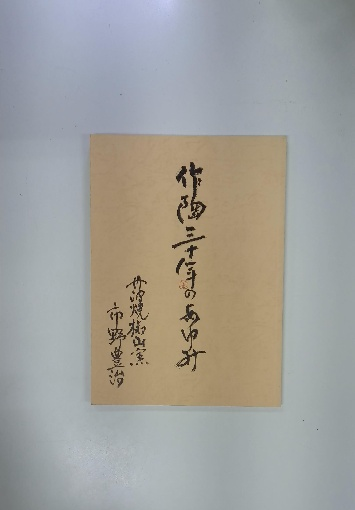 作陶三十年のあゆみ
丹波焼 窯
市野豊治